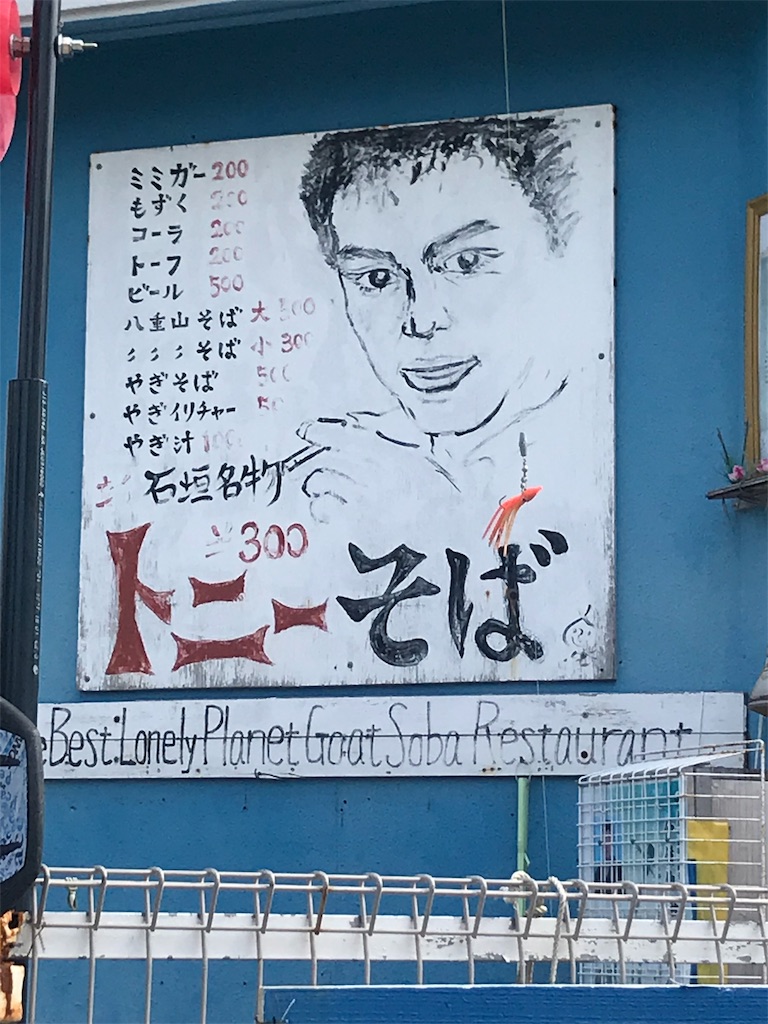 ミミガー 200
もずく 200
コーラ 200
トーフ 200
ビール 500
八重山そば 大 500
〃 〃 〃 そば 小 300
やぎそば 500
やぎイリチャー
やぎ汁
石垣名物
¥300
トニーそば
Best Lonely Planet Goat Soba Restaurant